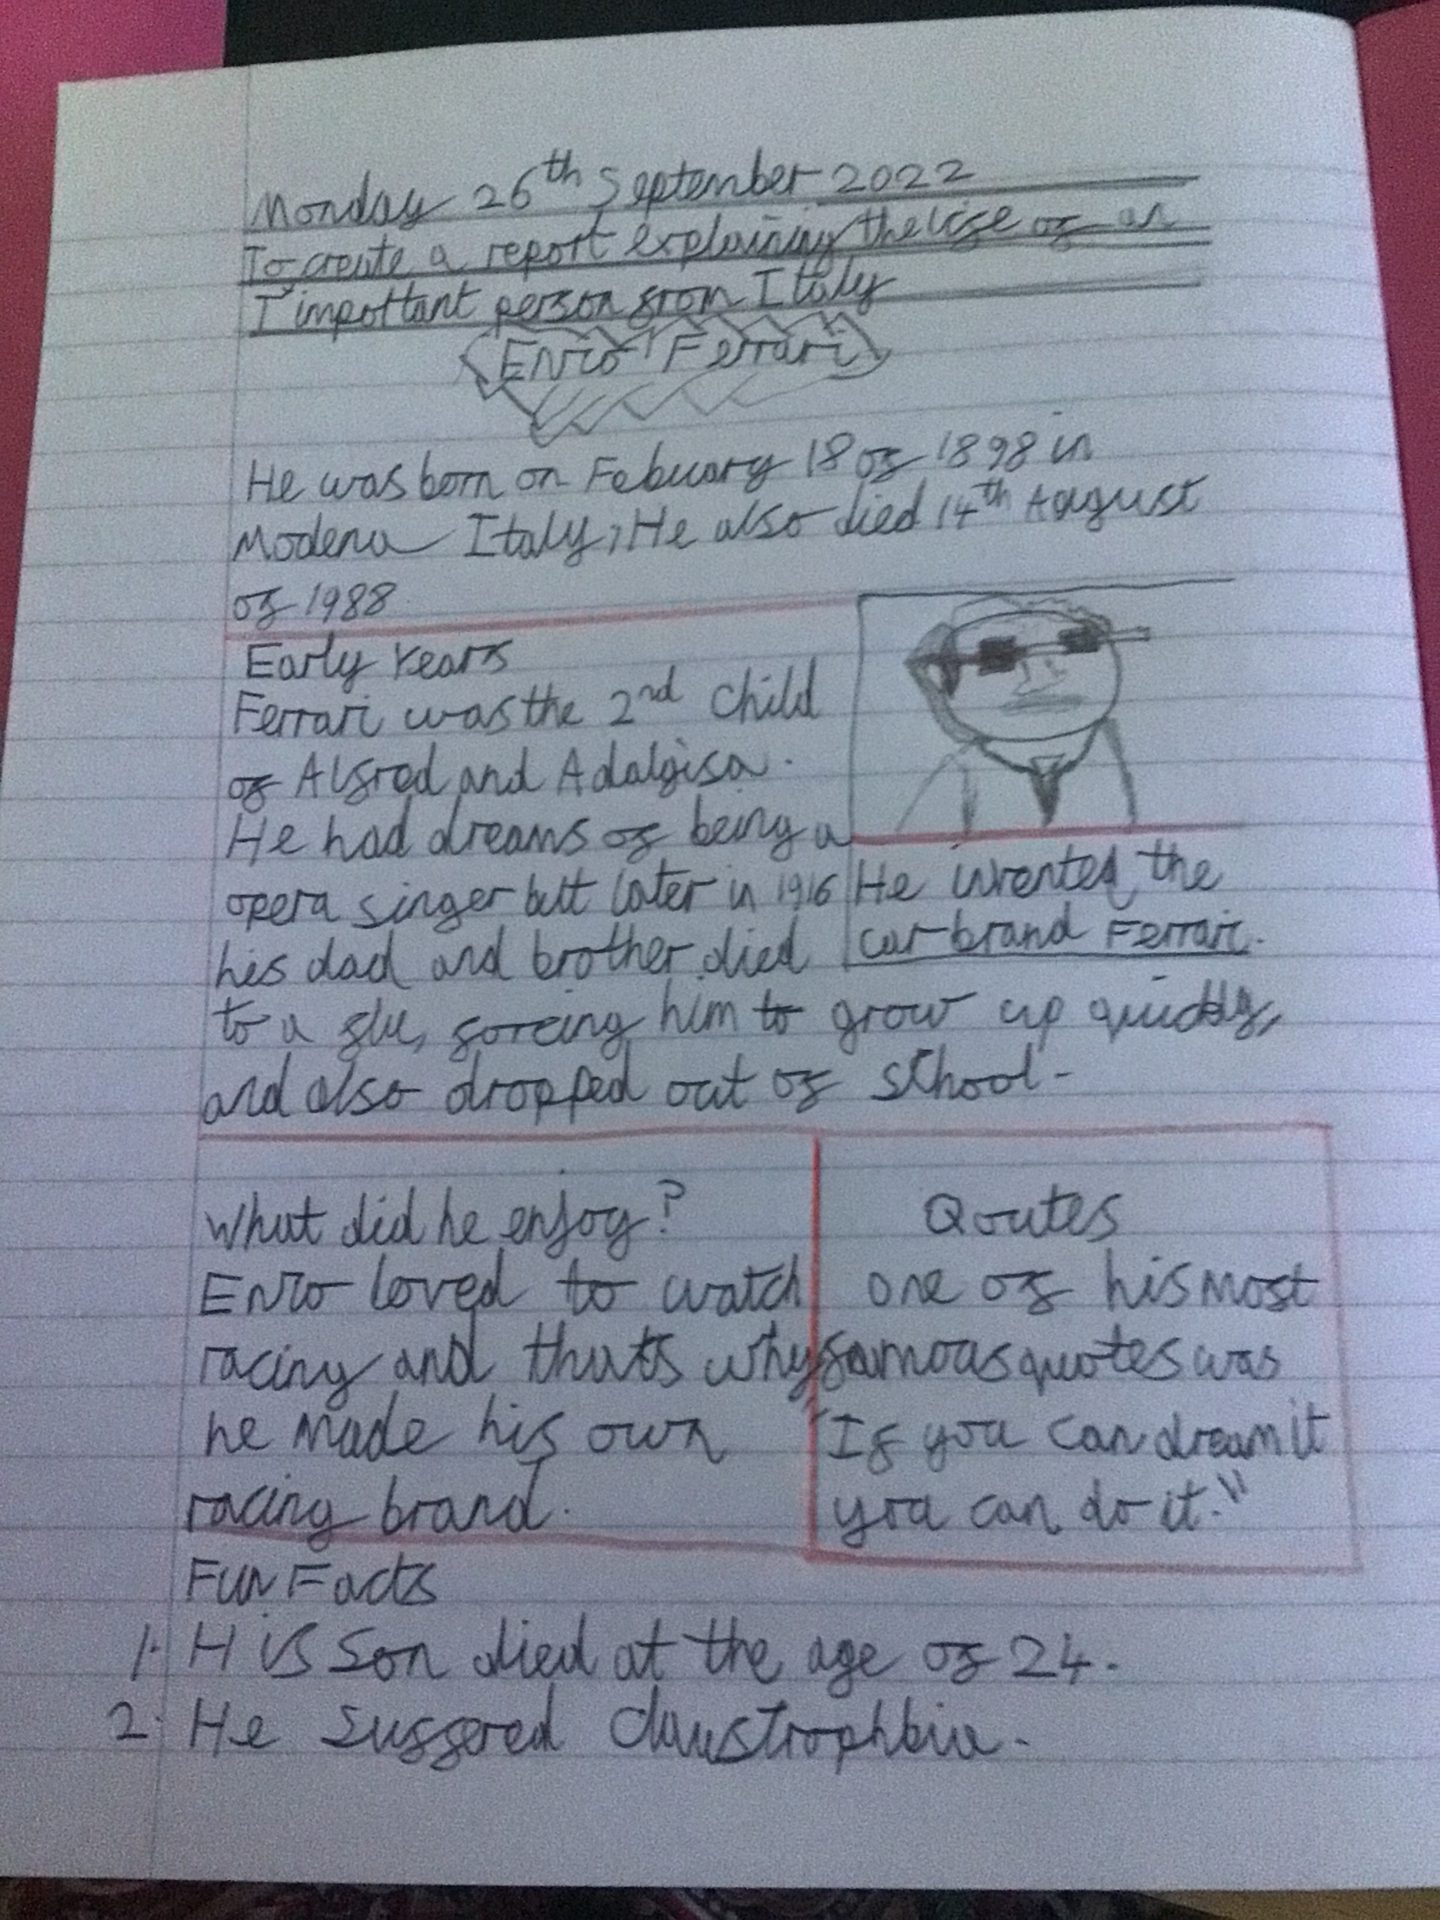 Monday 26th September 2022
To create a report explaining the life of an
I important person from Italy
Enzo Ferrari
He was born on Febuary 18 of 1898 in
Modena Italy, He also died 14th August
of 1988
Early Years
Ferrari was the 2nd child
of Alfred and Adalgisa.
He had dreams of being a
opera singer but later in 1916
his dad and brother died
to a flu, forceing him to grow up quickly,
and also dropped out of school.
He the
car brand Ferrari.
What did he enjoy?
Enzo loved to watch
racing and thats why
he made his own
racing brand.
Qoutes
one of his most
famous quotes was
"If you can dream it
you can do it."
Fun Facts
1. His son died at the age of 24.
2. He suffered claustrophbia.